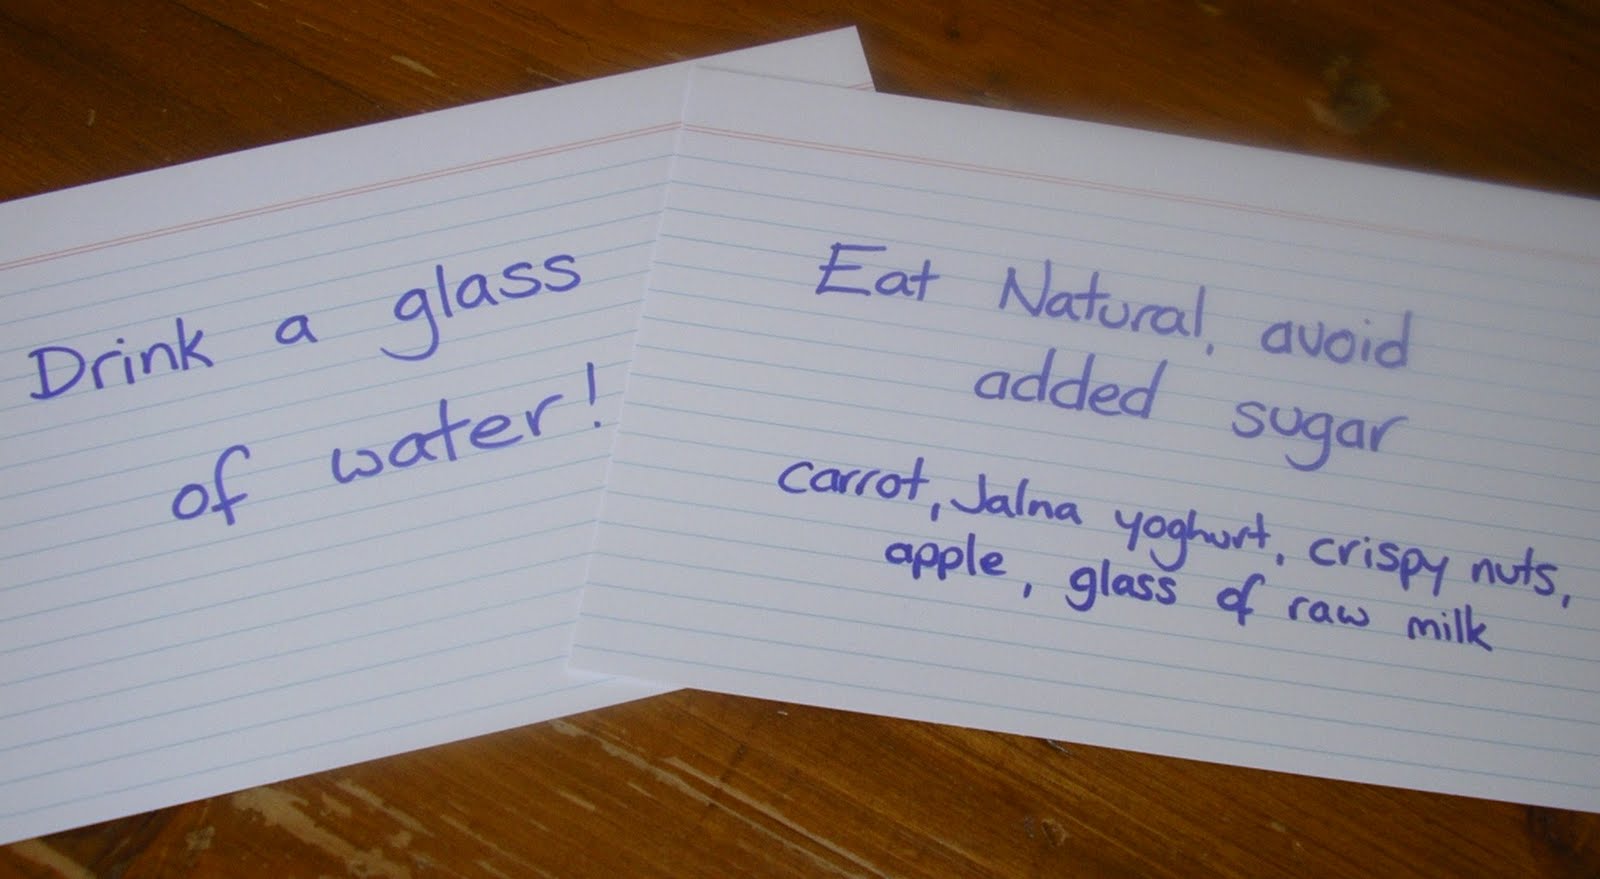 Drink a glass
of water!
Eat Natural, avoid
added sugar
carrot, Jalna yoghurt, crispy nuts,
apple, glass of raw milk